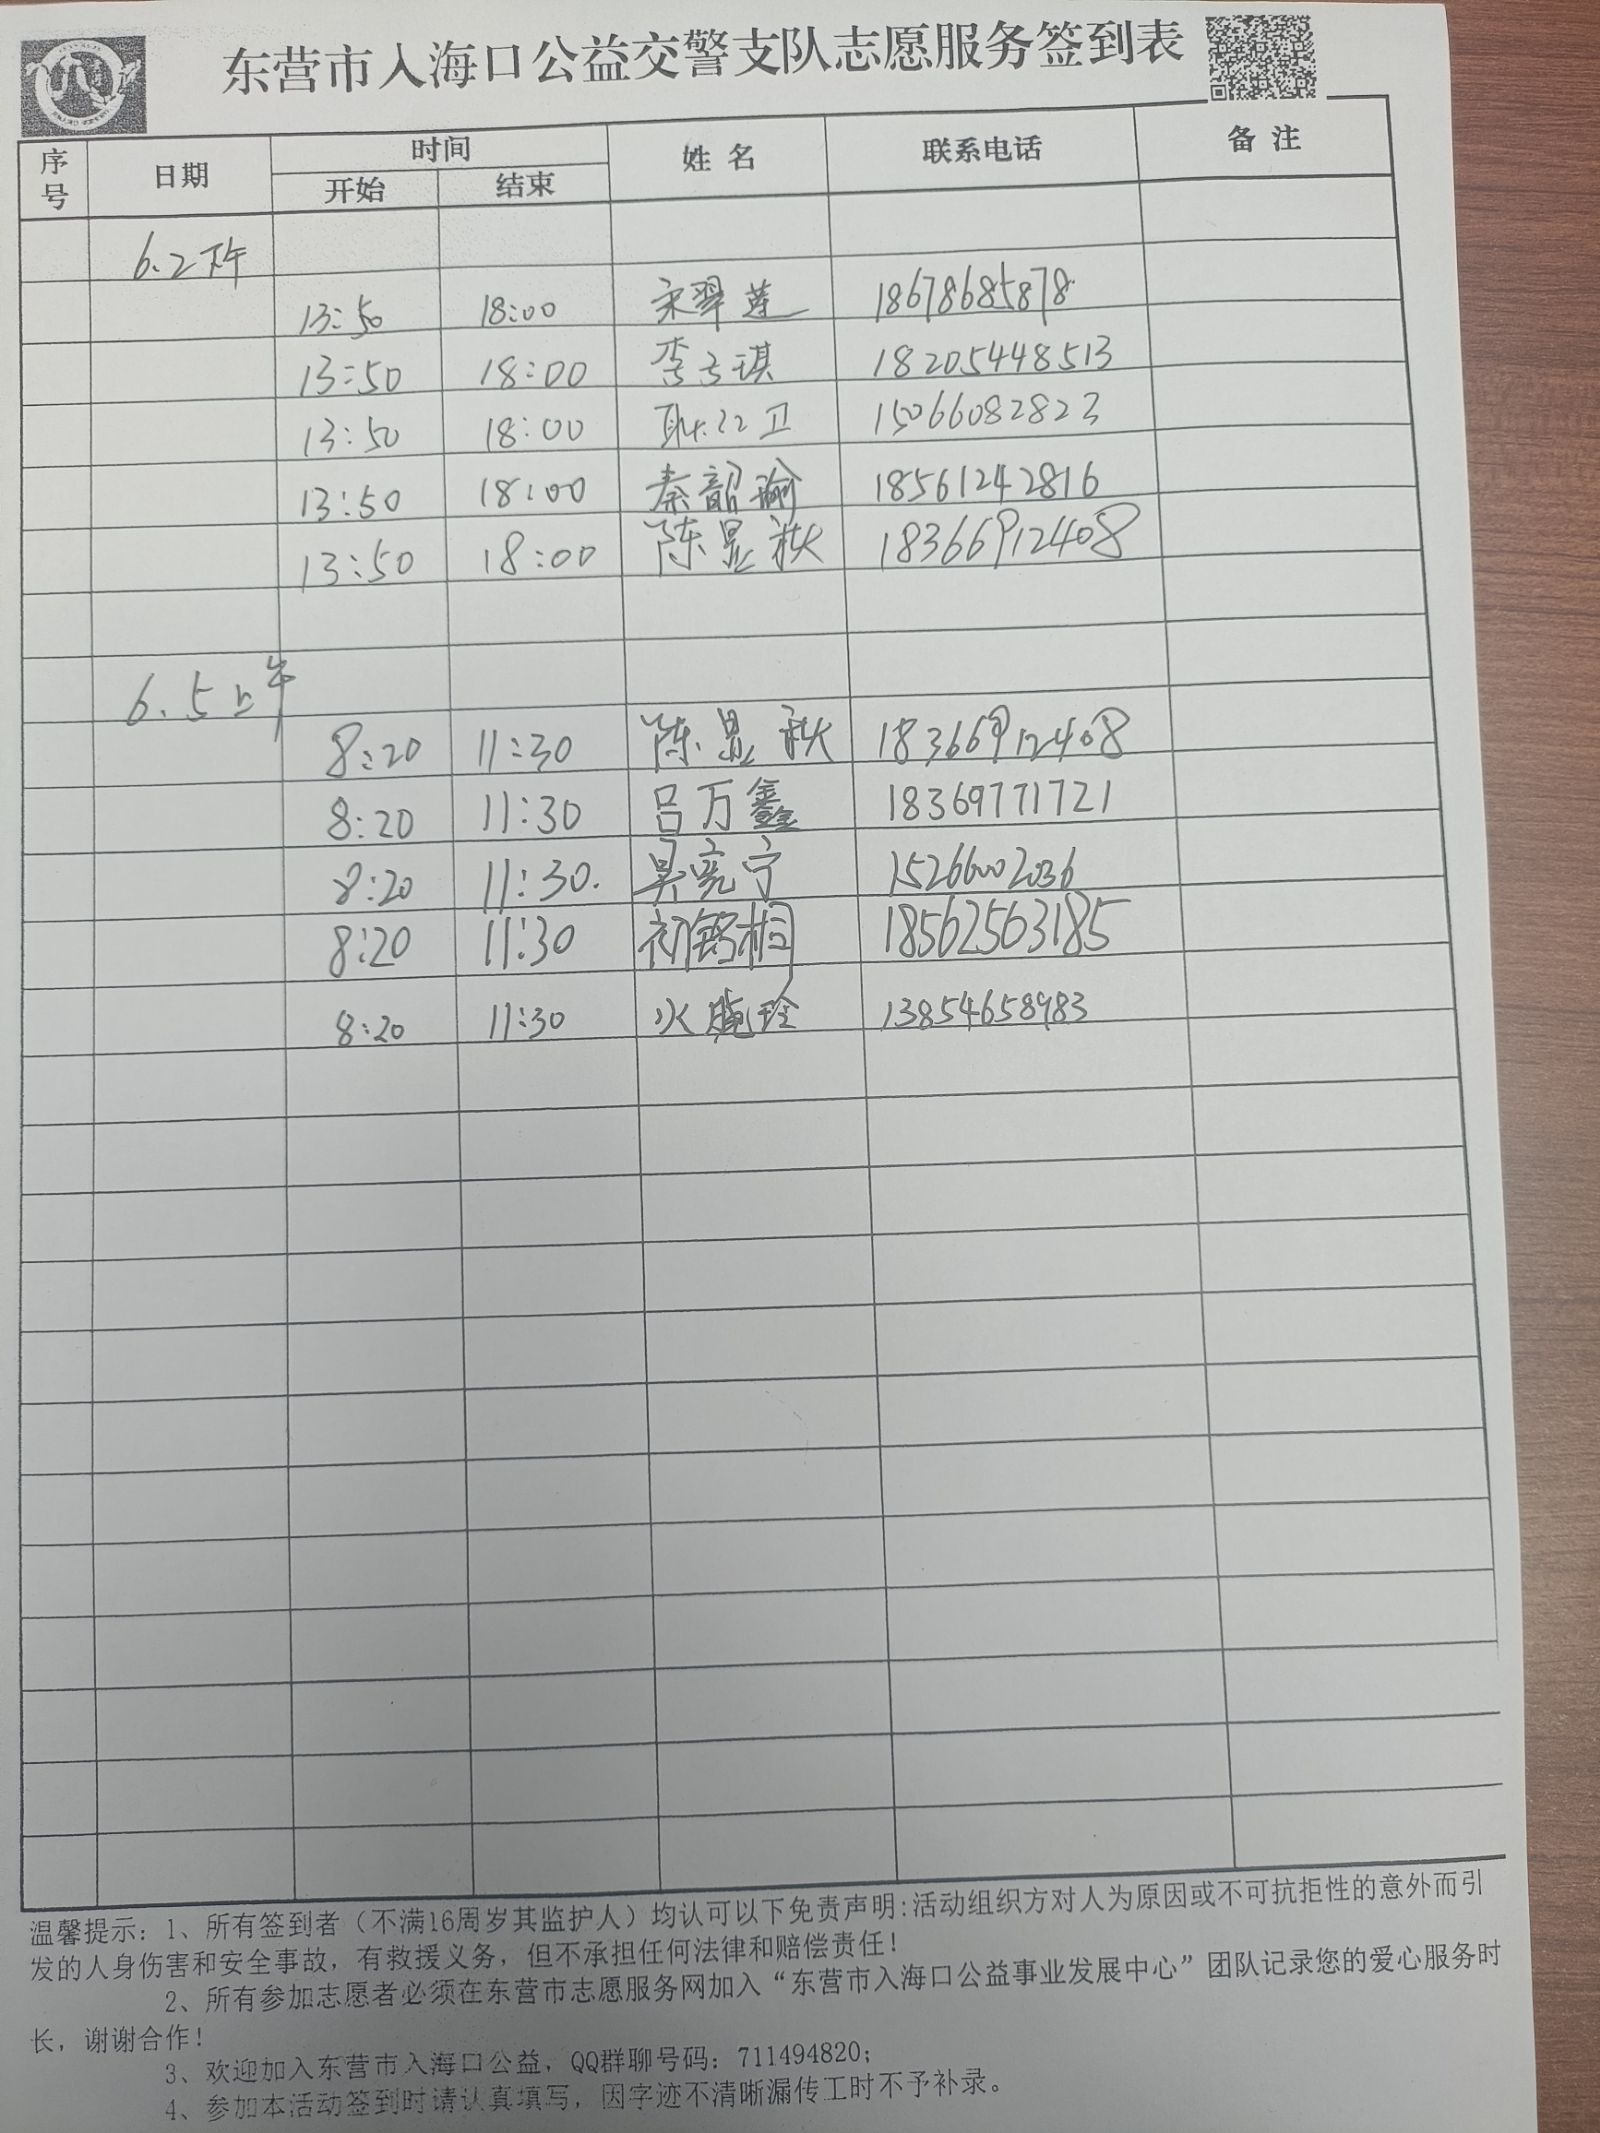 东营市入海口公益交警支队志愿服务签到表
序号 日期 时间 姓名 联系电话 备注
开始 结束
6.2下午
13:50 18:00 宋翠莲 18678685878
13:50 18:00 李子琪 18205448513
13:50 18:00 耿 卫 15066082823
13:50 18:00 秦韶瑜 18561242816
13:50 18:00 陈显秋 18366912408
6.5上午
8:20 11:30 陈显秋 18366912408
8:20 11:30 吕万鑫 18369771721
8:20 11:30. 吴亮宁 15266002036
8:20 11:30 初铭桓 18562563185
8:20 11:30 13854658983
温馨提示：1、所有签到者（不满16周岁其监护人）均认可以下免责声明:活动组织方对人为原因或不可抗拒性的意外而引
发的人身伤害和安全事故，有救援义务，但不承担任何法律和赔偿责任！
2、所有参加志愿者必须在东营市志愿服务网加入“东营市入海口公益事业发展中心”团队记录您的爱心服务时
长，谢谢合作！
3、欢迎加入东营市入海口公益，QQ群聊号码：711494820；
4、参加本活动签到时请认真填写，因字迹不清晰漏传工时不予补录。